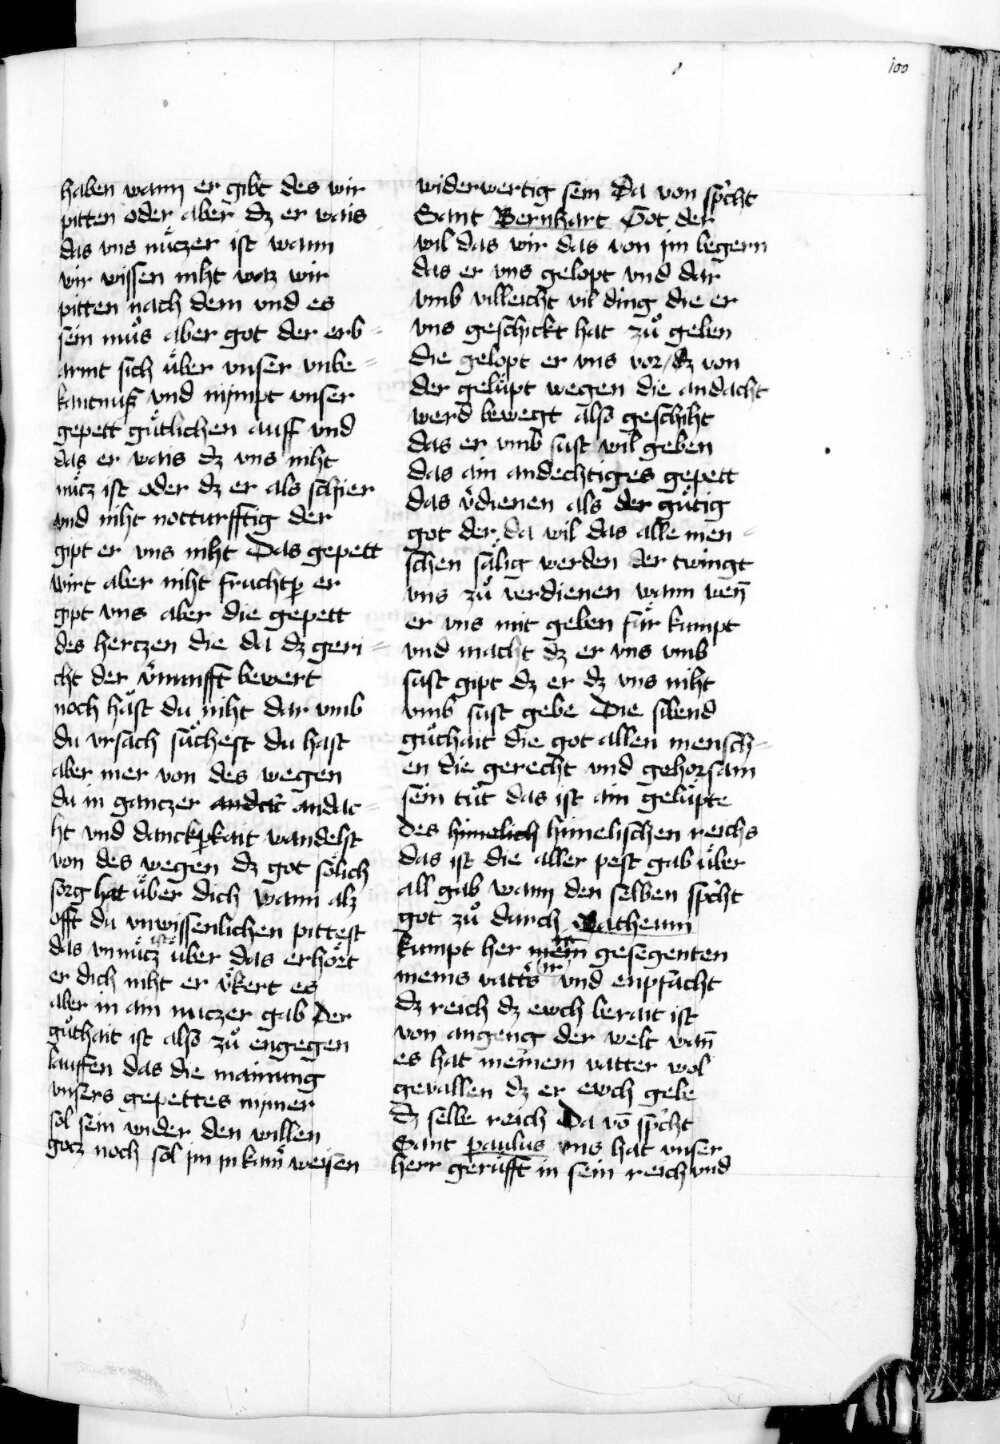 100
haben wann er gibt des wir
pitten oder aber dz er wais
das vns nüczer ist wann
wir wissen niht waz wir
pitten nach dem vnd es
sein mus aber got der erb=
armt sich über vnser vnbe=
kantnuß vnd nympt vnser
gepett gütlichen auff vnd
das er wais dz vns niht
nücz ist oder dz er als schier
vnd niht notturfftig der
gipt er vns niht Das gepett
wirt aber niht fruchtp er
gipt vns aber die gepett
des herczen die da dz geri=
cht der v̈nunfft bewert
noch hast du niht dar vmb
du vrsach süchest du hast
aber mer von des wegen
du in ganczer andac=
ht vnd danckp̱kait wandelst
von des wegen dz got sölich
sorg hat über dich wann alz
offt du vnwissenlichen pittest
das vnnücz ist über das erhört
er dich niht er v̈kert es
aber in ain nuczer gab Der
güthait ist also zů engegen
lauffen das die mainung
vnsers gepettes nymer
sol sein wider den willen
gocz noch sol im in kainr weisen
widerwertig sein Da von sp̄cht
Sant Bernhart Got der
wil das wir das von im begern
das er vns gelopt vnd dar
vmb villeicht vil ding die er
vns geschickt hat zů geben
die gelopt er vns vor / dz von
der gelüpt wegen die andacht
werd bewegt also geschiht
das er vmb sust wil geben
das ain andechtiges gepett
das v̈dienen als der gütig
got der da wil das alle men=
schen sälig werden der twingt
vns zů verdienen wann wen̄
er vns mit geben für kumpt
vnd macht dz er vns vmb
sust gipt dz er dz vns niht
vmb sust gebe Die sibend
güthait die got allen mensch=
en die gerecht vnd gehorsam
sein tůt das ist ain gelüpte
des himelich himelischen reichs
das ist die aller pest gab über
all gab wann den selben sp̄cht
got zů durch Matheum
kumpt her ir gesegenten
meins vatters vnd enpfächt
dz reich dz ewch berait ist
von angeng der welt wan̄
es hat meinem vatter wol
gevallen dz er ewch gebe
dz selbe reich Da vō sp̄cht
Sant paulus vns hat vnser
herr gerüfft in sein reich vnd